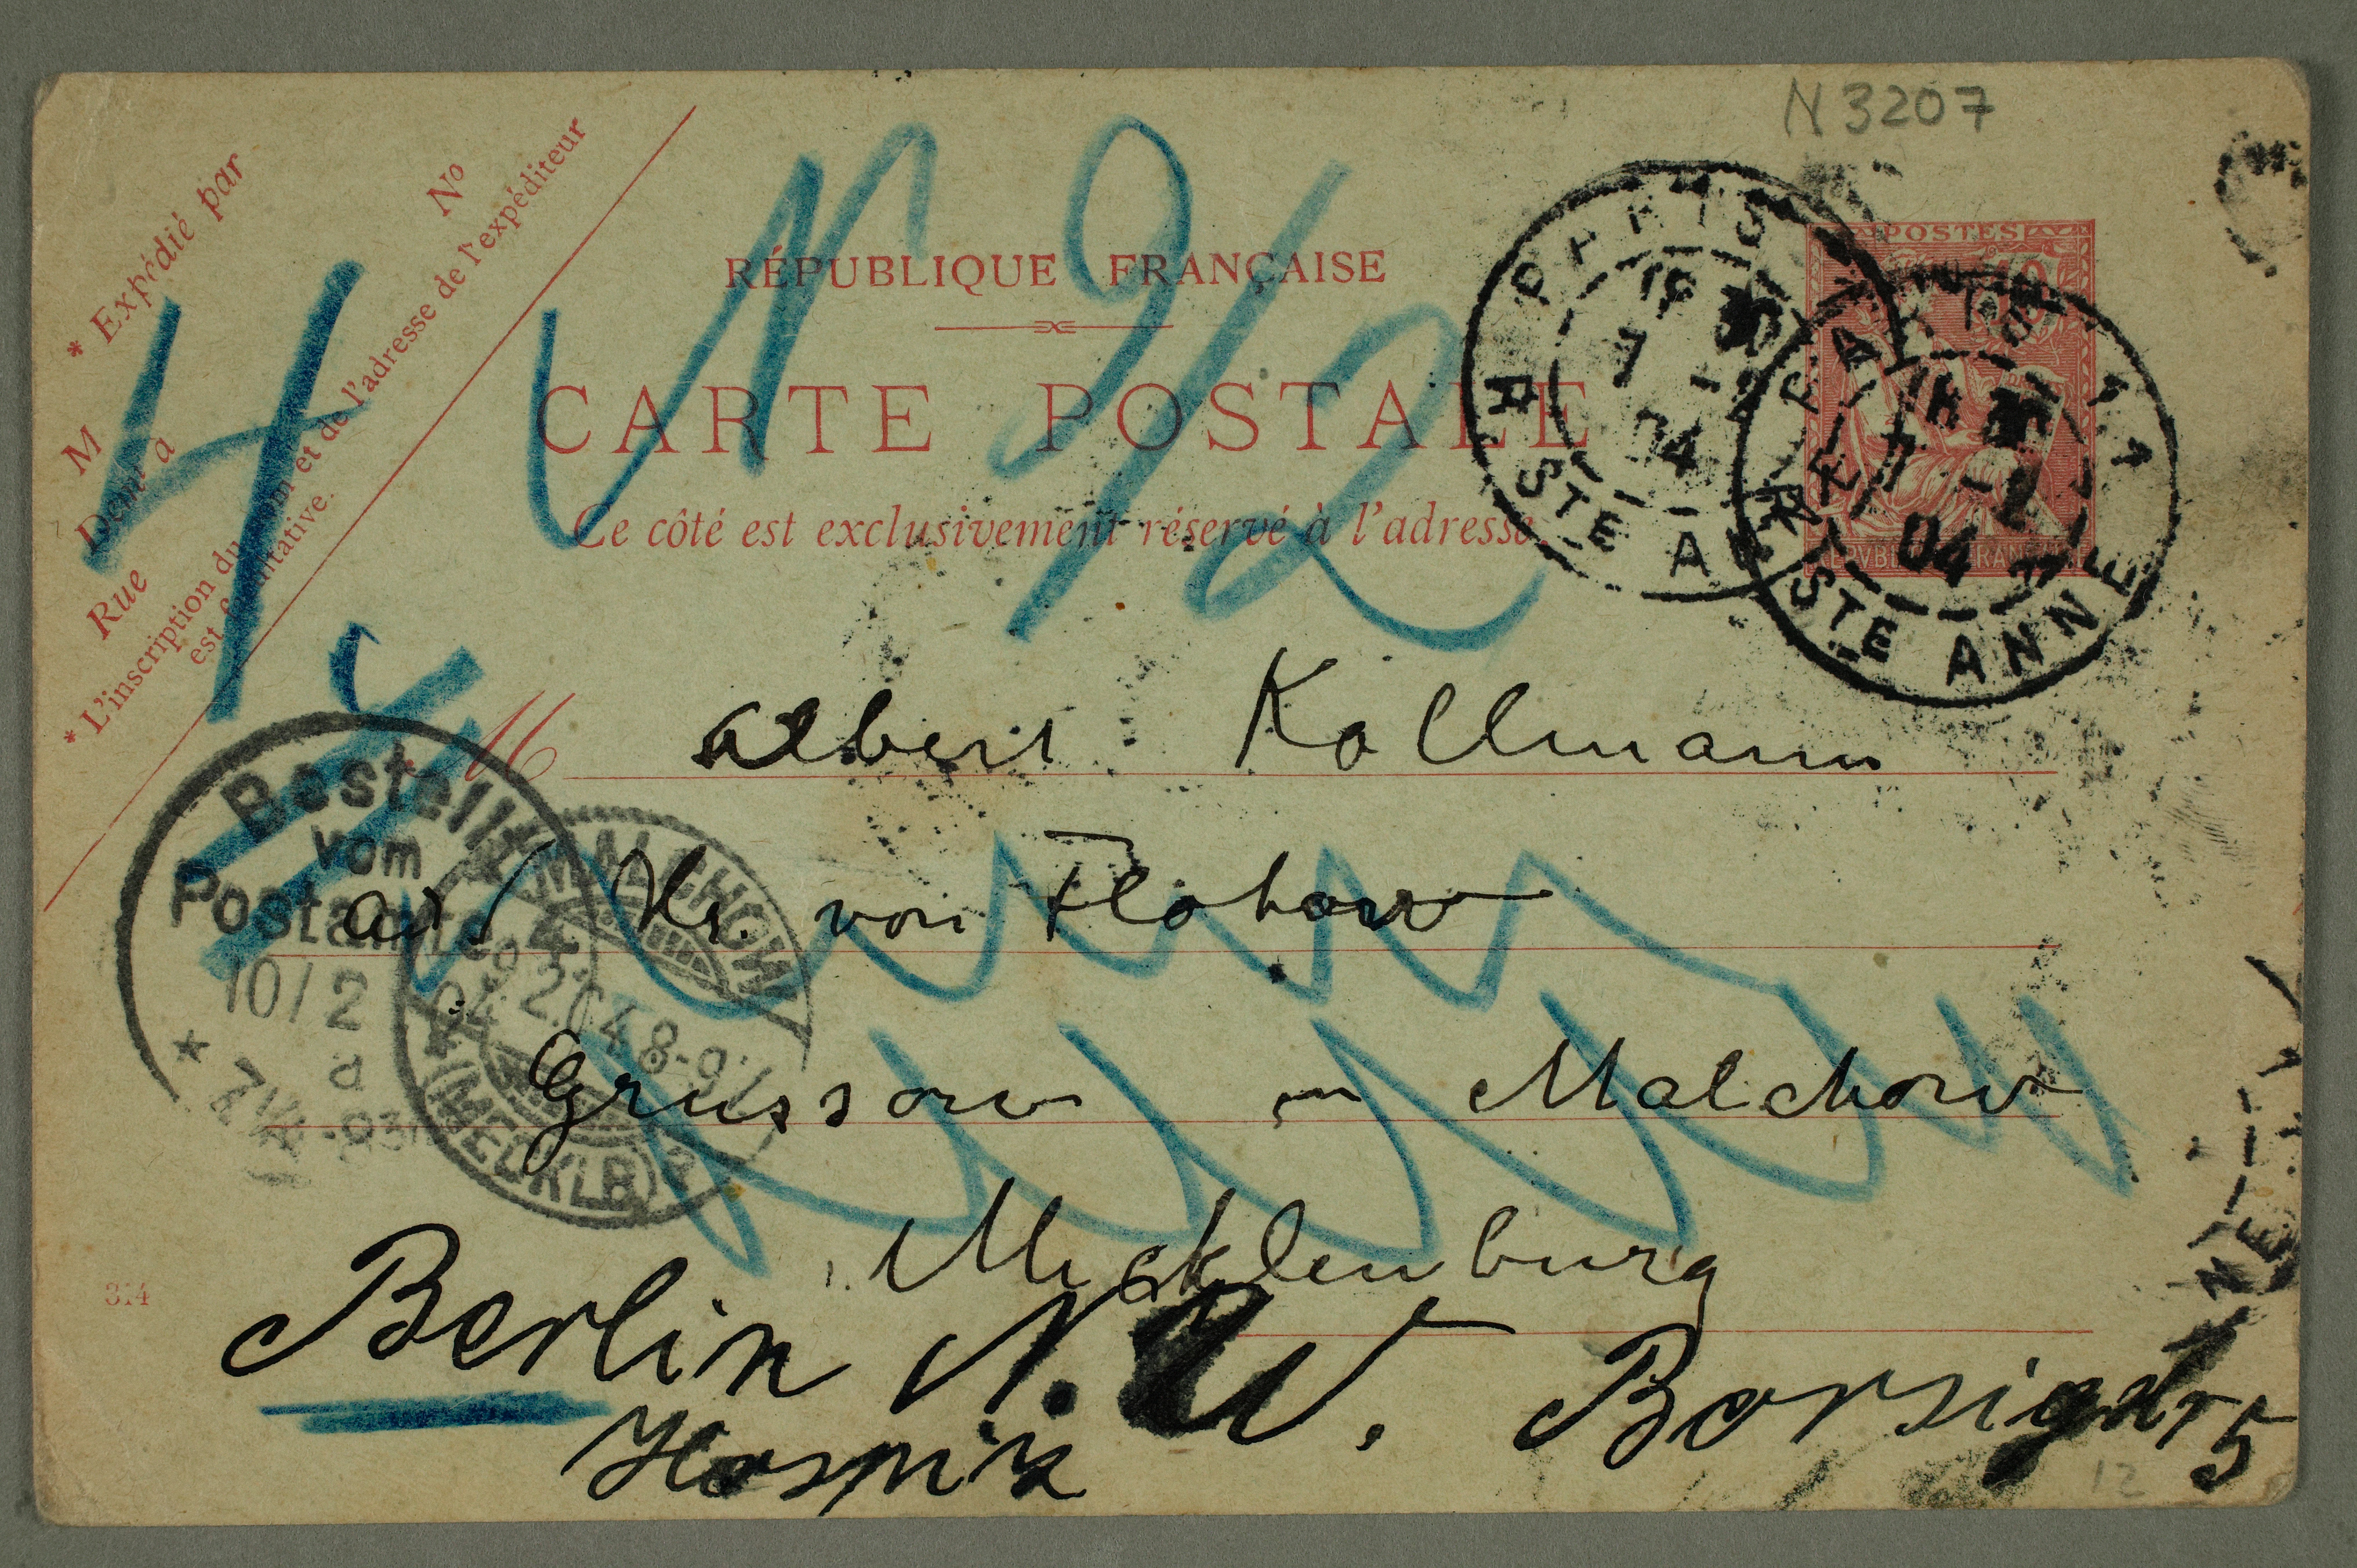 N 3207
* Expédié par
No
M
Dem.t à
Rue
* L'inscription du nom et de l'adresse de l'expéditeur
est facultative.
4
N 9/2
RÉPUBLIQUE FRANÇAISE
CARTE POSTALE
Ce côté est exclusivement réservé à l'adresse.
POSTES
10
PARIS
7 -2
04
R STE A
PARIS
7 -2
04
R STE ANNE
M Albert Kollmann
Hr. von Flotow
Grüssow in Malchow
Mecklenburg
Berlin N.W. Borsigstr 5
Hospiz
Bestellt
vom
Postamte
10/2
MALCHOW
9.2.04 8-9V
(MECKLB)
314
12